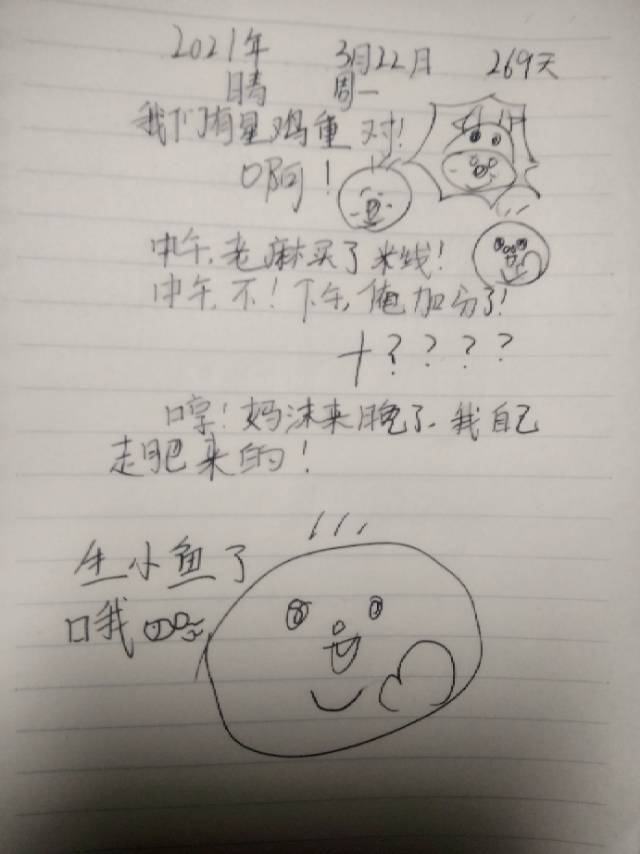 2021年 3月22月 269天
晴 周一
我们有星鸡重对!
啊!
中午,老麻买了米线!
中午,不!下午,俺加分了!
+????
哼!妈沫来晚了,我自己
走肥来的!
生小鱼了
哦